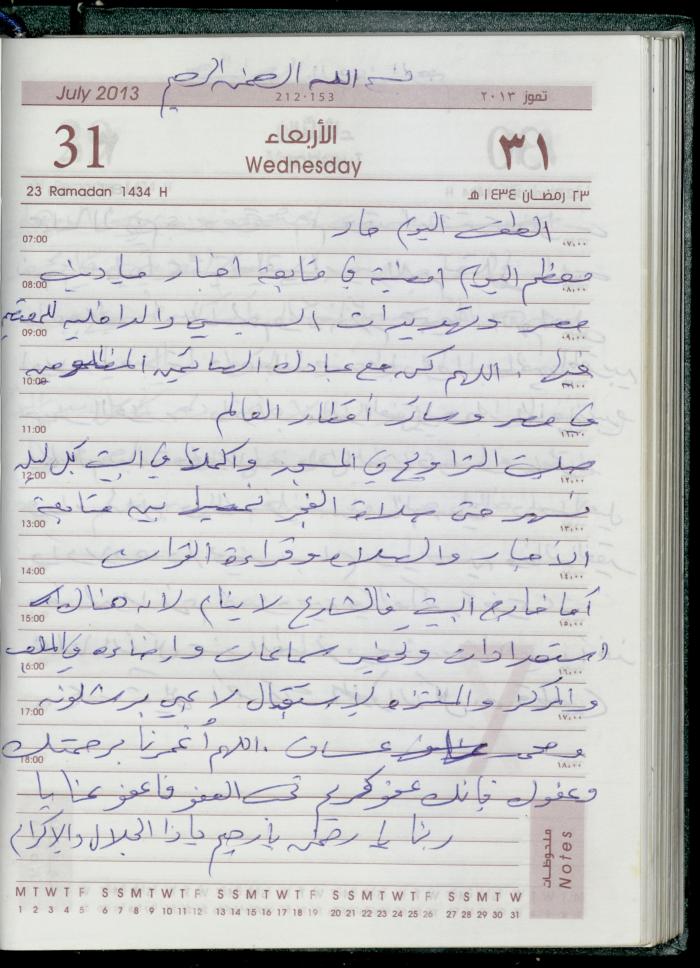 بسم الله الرحمن الرحيم
July 2013
212-153
تموز ٢٠١٣
31
الأربعاء
Wednesday
٣١
23 Ramadan 1434 H
٢٣ رمضان ١٤٣٤ هـ
الطقس اليوم حار
معظم اليوم امضيته في متابعة اخبار ميادين
مصر وتهديدات السيسي والداخليه للمعتصمين
فيها . اللهم كن مع عبادك الصائمين المظلومين
في مصر وسائر أقطار العالم
صليت التراويح في المسجد واكملنا في البيت كل ليلة
نسهر حتى صلاة الفجر نمضيها بين متابعة
الأخبار والصلاه وقراءة القرآن
أما خارج البيت فالشارع لا ينام لأن هنالك
استعدادات وتحضير سماعات وإضاءه في الملعب
والمركز والمنتزه لإستقبال لاعبي برشلونه
ومحمد عساف . اللهم أغمرنا برحمتك
وعفوك فإنك عفو كريم تحب العفو فاعفو عنا يا
ربنا يا رحمن يا رحيم يا ذا الجلال والإكرام
07:00 ٠٧:٠٠
08:00 ٠٨:٠٠
09:00 ٠٩:٠٠
10:00
11:00
12:00 ١٢:٠٠
13:00 ١٣:٠٠
14:00 ١٤:٠٠
15:00 ١٥:٠٠
16:00 ١٦:٠٠
17:00 ١٧:٠٠
18:00 ١٨:٠٠
ملحوظات
Notes
M T W T F S S M T W T F S S M T W T F S S M T W T F S S M T W
1 2 3 4 5 6 7 8 9 10 11 12 13 14 15 16 17 18 19 20 21 22 23 24 25 26 27 28 29 30 31